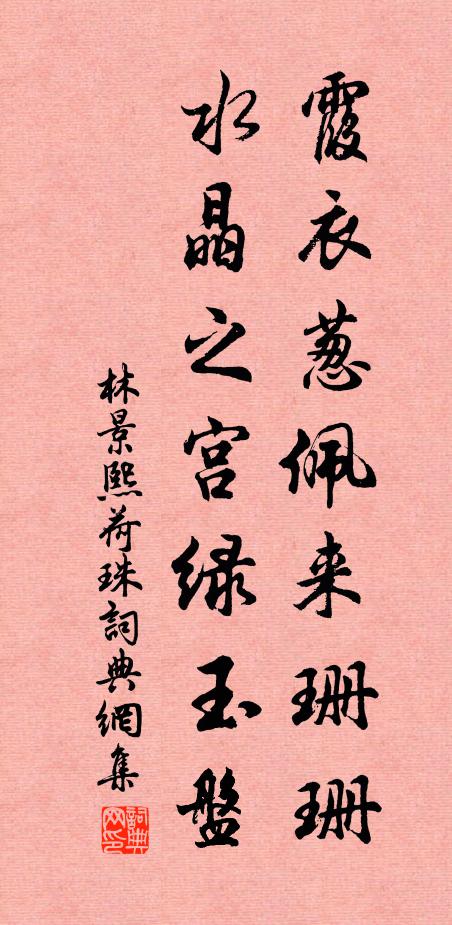 霞衣葱佩来珊珊
水晶之宫绿玉盤
林景熙荷珠詞典網集
詞典网印